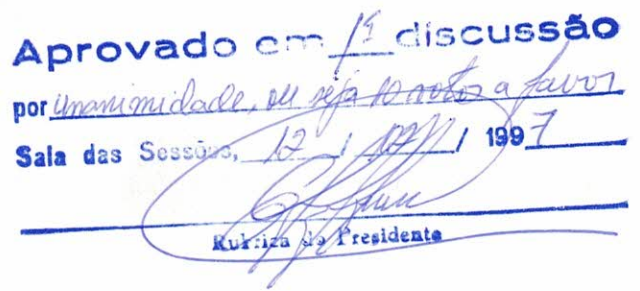 Aprovado em 1ª discussão
por unanimidade, ou seja 10 votos a favor
Sala das Sessões, 12 / / 1997
Rubrica do Presidente